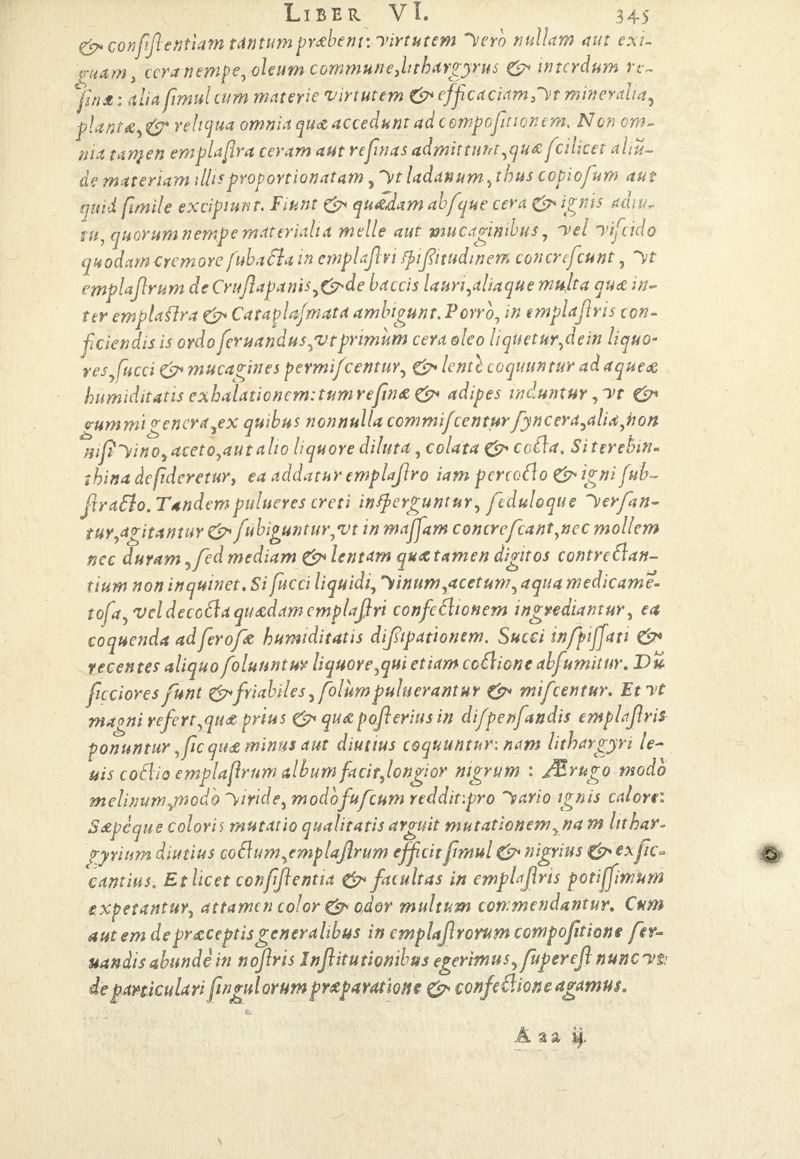 LIBER VI. 345
& consistentiam tantum præbent: virtutem verò nullam aut exi-
guam, cera nempe, oleum commune, lithargyrus & interdum re-
sinæ: alia simul cum materie virtutem & efficaciam, vt mineralia,
plantæ, & reliqua omnia quæ accedunt ad compositionem. Non om-
nia tamen emplastra ceram aut resinas admittunt, quæ scilicet aliū-
de materiam illis proportionatam, vt ladanum, thus copiosum aut
quid simile excipiunt. Fiunt & quædam absque cera & ignis adiu-
tu, quorum nempe materialia melle aut mucaginibus, vel viscido
quodam cremore subacta in emplastri spissitudinem concrescunt, vt
emplastrum de Crusta panis, & de baccis lauri, aliaque multa quæ in-
ter emplastra & Cataplasmata ambigunt. Porrò, in emplastris con-
ficiendis is ordo seruandus, vt primùm cera oleo liquetur, dein liquo-
res, succi & mucagines permiscentur, & lentè coquuntur ad aqueæ
humiditatis exhalationem: tum resinæ & adipes induntur, vt &
gummi genera, ex quibus nonnulla commiscentur syncera, alia, non
nisi vino, aceto, aut alio liquore diluta, colata & cocta. Si terebin-
thina desideretur, ea addatur emplastro iam percocto & igni sub-
stracto. Tandem pulueres creti insperguntur, seduloque versan-
tur, agitantur & subiguntur, vt in massam concrescant, nec mollem
nec duram, sed mediam & lentam quæ tamen digitos contrectan-
tium non inquinet. Si succi liquidi, vinum, acetum, aqua medicamē-
tosa, vel decocta quædam emplastri confectionem ingrediantur, ea
coquenda ad serosæ humiditatis dissipationem. Succi inspissati &
recentes aliquo soluuntur liquore, qui etiam coctione absumitur. Dū
sicciores sunt & friabiles, solùm puluerantur & miscentur. Et vt
magni refert, quæ prius & quæ posterius in dispensandis emplastris
ponuntur, sic quæ minus aut diutius coquuntur: nam lithargyri le-
uis coctio emplastrum album facit, longior nigrum : Ærugo modò
melinum, modò viride, modò fuscum reddit: pro vario ignis calore:
Sæpèque coloris mutatio qualitatis arguit mutationem, nam lithar-
gyrium diutius coctum, emplastrum efficit simul & nigrius & exsic-
cantius. Et licet consistentia & facultas in emplastris potissimum
expetantur, attamen color & odor multum commendantur. Cum
autem de præceptis generalibus in emplastrorum compositione ser-
uandis abundè in nostris Institutionibus egerimus, superest nunc vt
de particulari singulorum præparatione & confectione agamus.
Aaa ij.